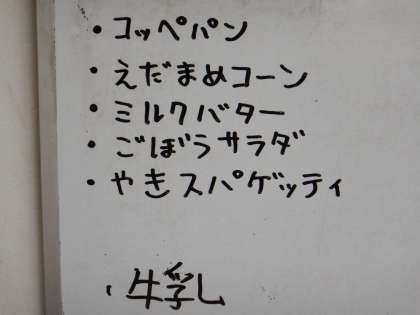 ・コッペパン
・えだまめコーン
・ミルクバター
・ごぼうサラダ
・やきスパゲッティ
・牛乳